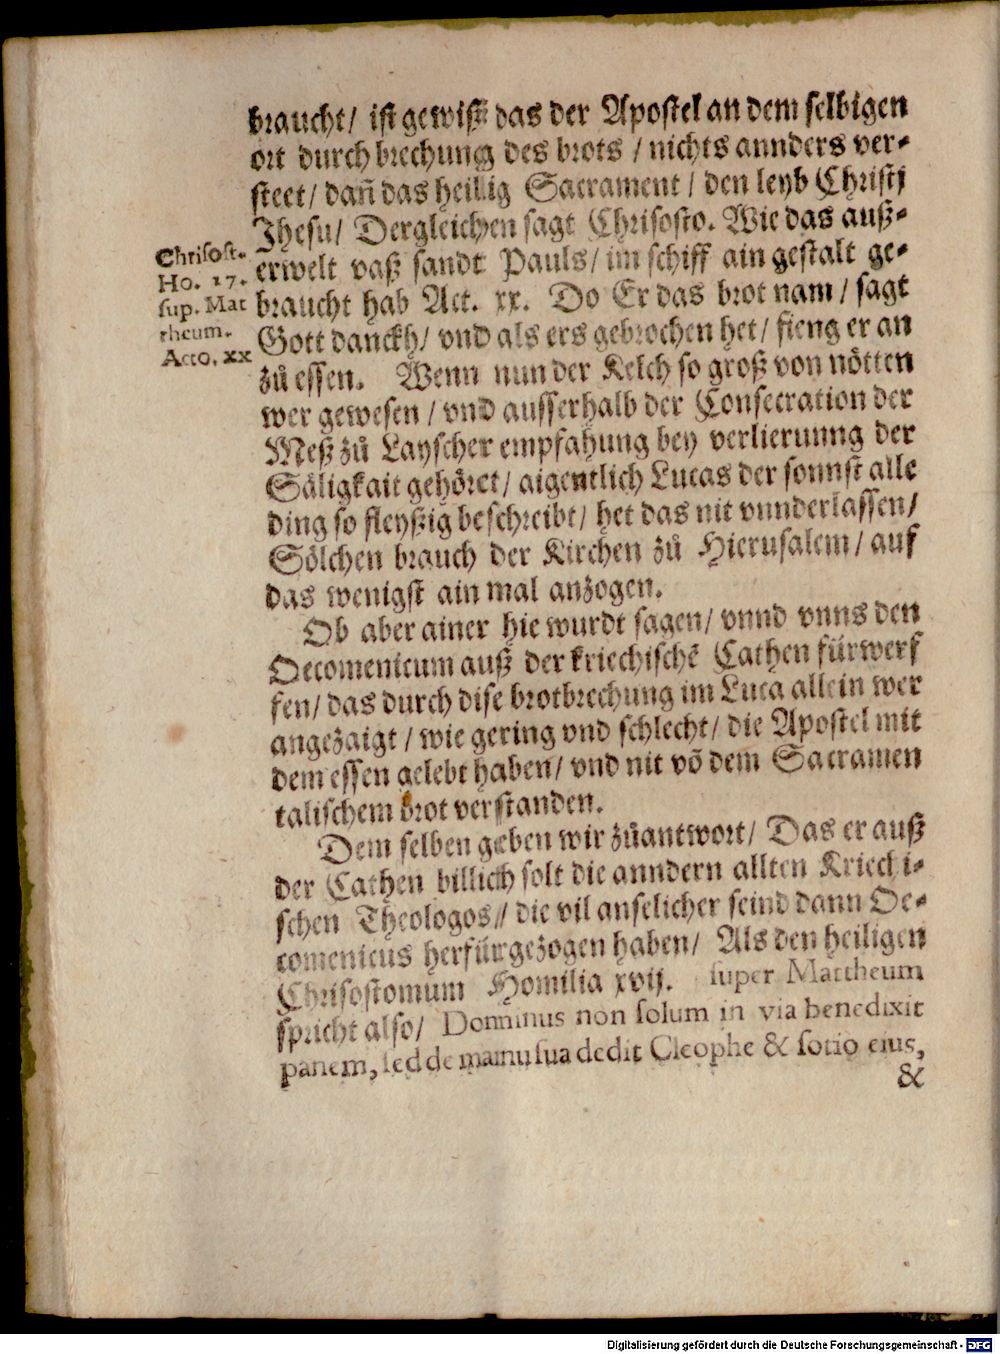 braucht/ ist gewiß das der Apostel an dem selbigen
ort durch brechung des brots / nichts annders ver-
steet/ dañ das heilig Sacrament / den leyb Christj
Jhesu/ Dergleichen sagt Chrisosto. Wie das auß-
erwelt vaß sandt Pauls/ im schiff ain gestalt ge-
braucht hab Act. xx. Do Er das brot nam / sagt
Gott danckh/ vnd als ers gebrochen het/ fieng er an
zů essen. Wenn nun der Kelch so groß von nötten
wer gewesen / vnd ausserhalb der Consecration der
Meß zů Layscher empfahung bey verlierunng der
Säligkait gehöret/ aigentlich Lucas der sonnst alle
ding so fleyßig beschreibt/ het das nit vnnderlassen/
Sölchen brauch der Kirchen zů Hierusalem/ auf
das wenigst ain mal anzogen.
Chrisost.
Ho. 17.
sup. Mat
theum.
Acto. xx
Ob aber ainer hie wurdt sagen/ vnnd vnns den
Oecomenicum auß der kriechischē Cathen fürwerf
fen/ das durch dise brotbrechung im Luca allein wer
angezaigt / wie gering vnd schlecht/ die Apostel mit
dem essen gelebt haben/ vnd nit võ dem Sacramen
talischem brot verstanden.
Dem selben geben wir zůantwort/ Das er auß
der Cathen billich solt die anndern allten Kriechi-
schen Theologos// die vil anselicher seind dann Oe-
comenicus herfürgezogen haben/ Als den heiligen
Chrisostomum Homilia xvij. super Mattheum
spricht also/ Dominus non solum in via benedixit
panem, sed de manu sua dedit Cleophe & sotio eius,
&
Digitalisierung gefördert durch die Deutsche Forschungsgemeinschaft - DFG